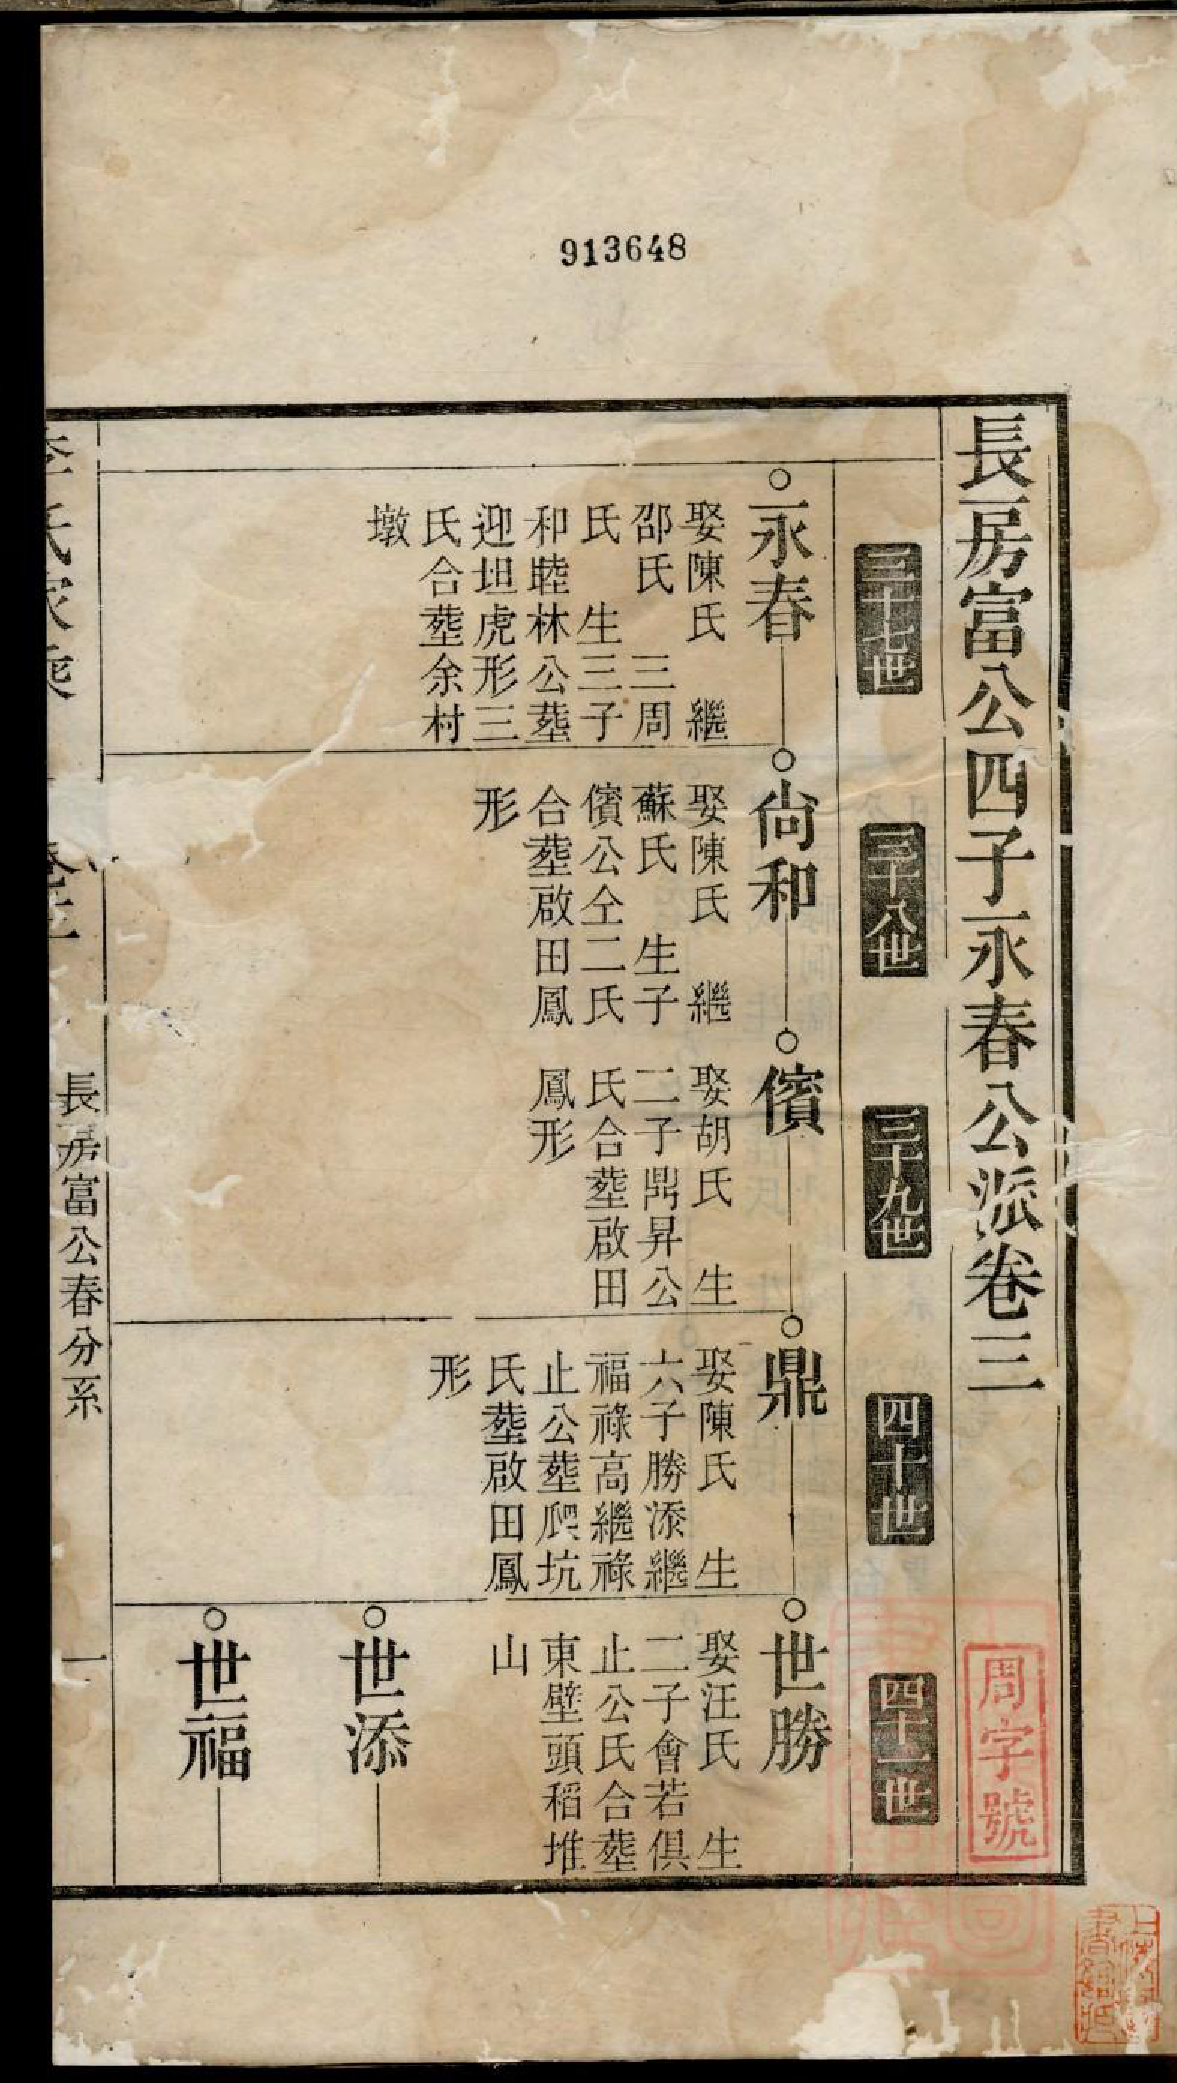 913648
長房富公四子永春公派卷三
周字號
三十七世
三十八世
三十九世
四十世
四十一世
永春
娶陳氏 繼
邵氏 三周
氏 生三子
和睦林公塟
迎坦虎形三
氏合塟余村
墩
尙和
娶陳氏 繼
蘇氏 生子
儐公仝二氏
合塟啟田鳳
形
儐
娶胡氏 生
二子鼎昇公
氏合塟啟田
鳳形
鼎
娶陳氏 生
六子勝添繼
福祿高繼祿
止公塟爬坑
氏塟啟田鳳
形
世勝
娶汪氏 生
二子會若俱
止公氏合塟
東壁頭稻堆
山
世添
世福
李氏家乘
卷三
長房富公春分系
一